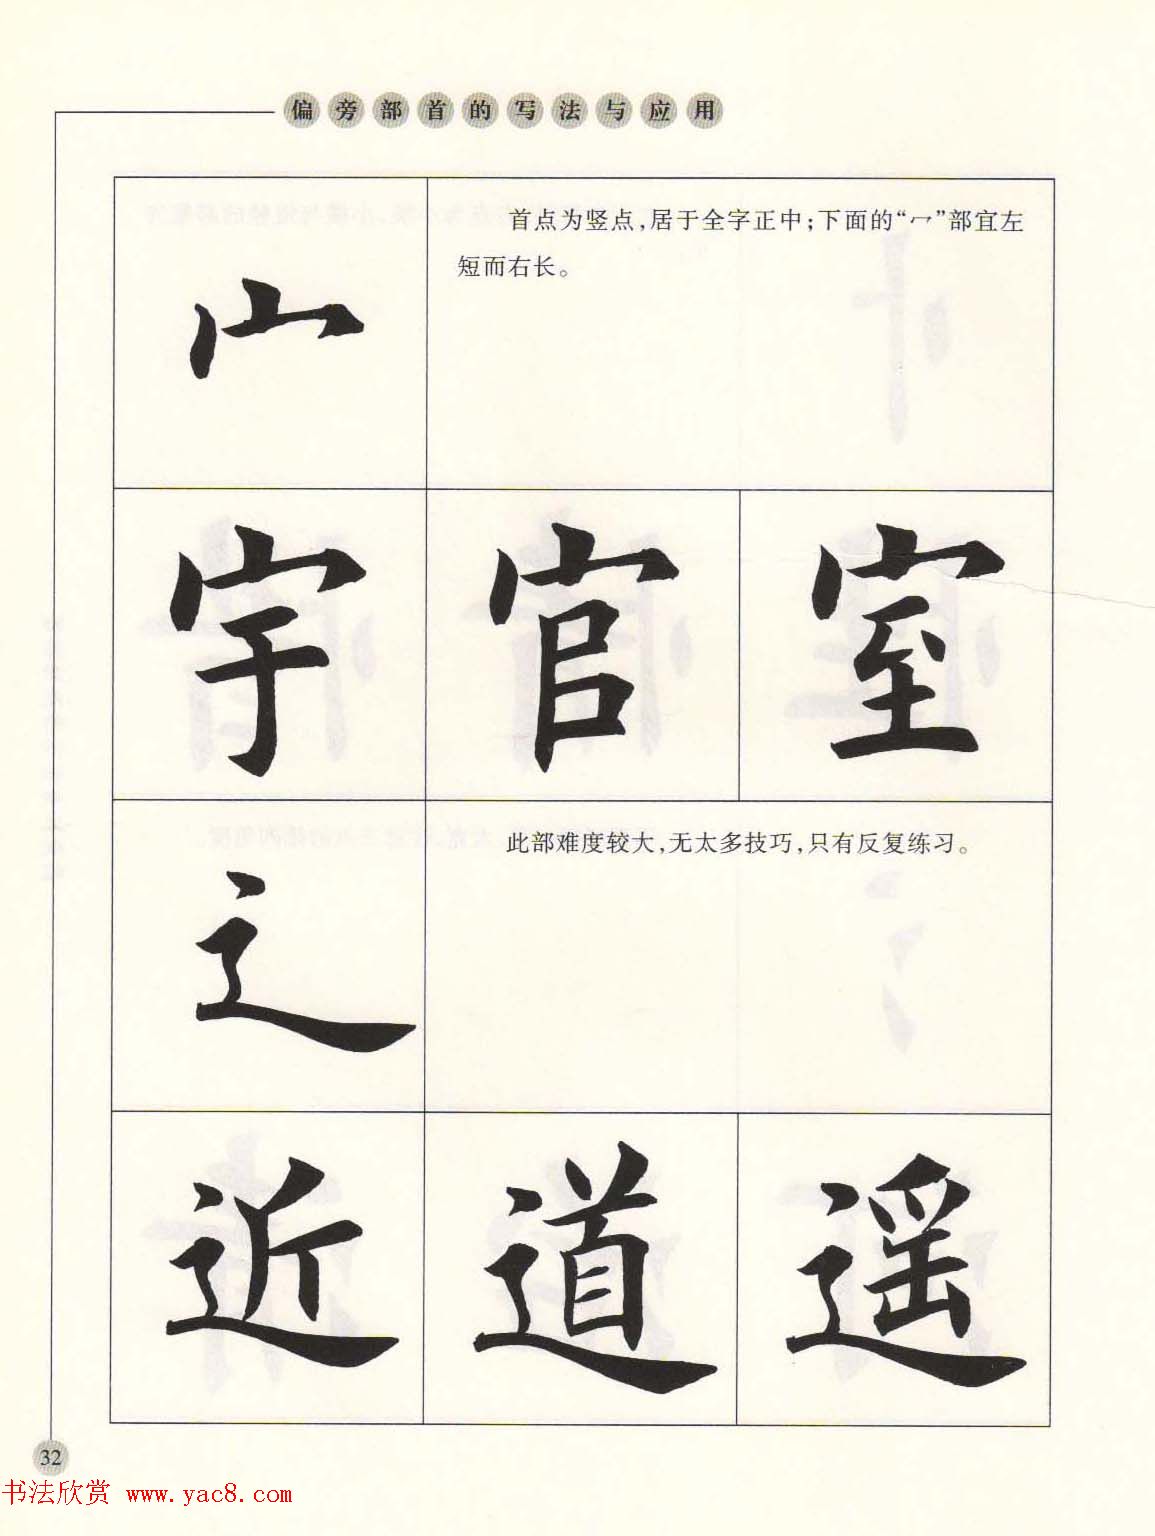 偏旁部首的写法与应用
宀
首点为竖点,居于全字正中;下面的“冖”部宜左
短而右长。
宇 官 室
辶
此部难度较大,无太多技巧,只有反复练习。
近 道 遥
32
书法欣赏 www.yac8.com